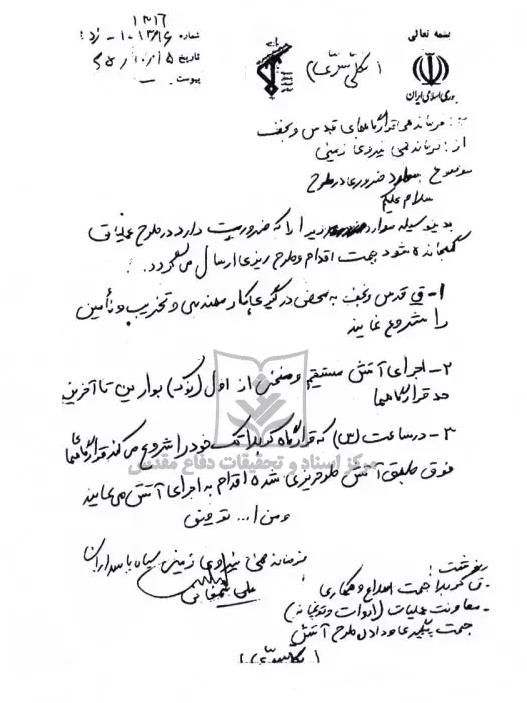 بسمه تعالی
۱۳۱۶
شماره ۱۰۱۳/۱۶ - زد :
تاریخ ۶۵/۱۰/۵
پیوست —
( بکلی سری )
جمهوری اسلامی ایران
به : فرماندهی قرارگاههای قدس و نجف
از : فرماندهی نیروی زمینی
موضوع موارد ضروری در طرح
سلام علیکم
بدینوسیله موارد زیر را که ضروریت دارد در طرح عملیات
گنجانده شود جهت اقدام و طرح ریزی ارسال می گردد :
۱- ق قدس و نجف به محض درگیری کار مهندسی و تخریب و تأمین
را شروع نمایند
۲- اجرای آتش مستقیم و منحنی از اول (نوک) بوارین تا آخرین
حد قرارگاهها
۳- در ساعت (س) که قرارگاه کربلا تک خود را شروع می کند قرارگاههای
فوق طبق آتش طرحریزی شده اقدام به اجرای آتش می نمایند
و من ا... توفیق
فرمانده نیروی زمینی سپاه پاسداران
علی شمخانی
رونوشت :
- ق کربلا جهت اطلاع و همکاری
- معاونت عملیات (ادوات و توپخانه)
جهت پیگیری و دادن طرح آتش
( بکلی سری )
مرکز اسناد و تحقیقات دفاع مقدس